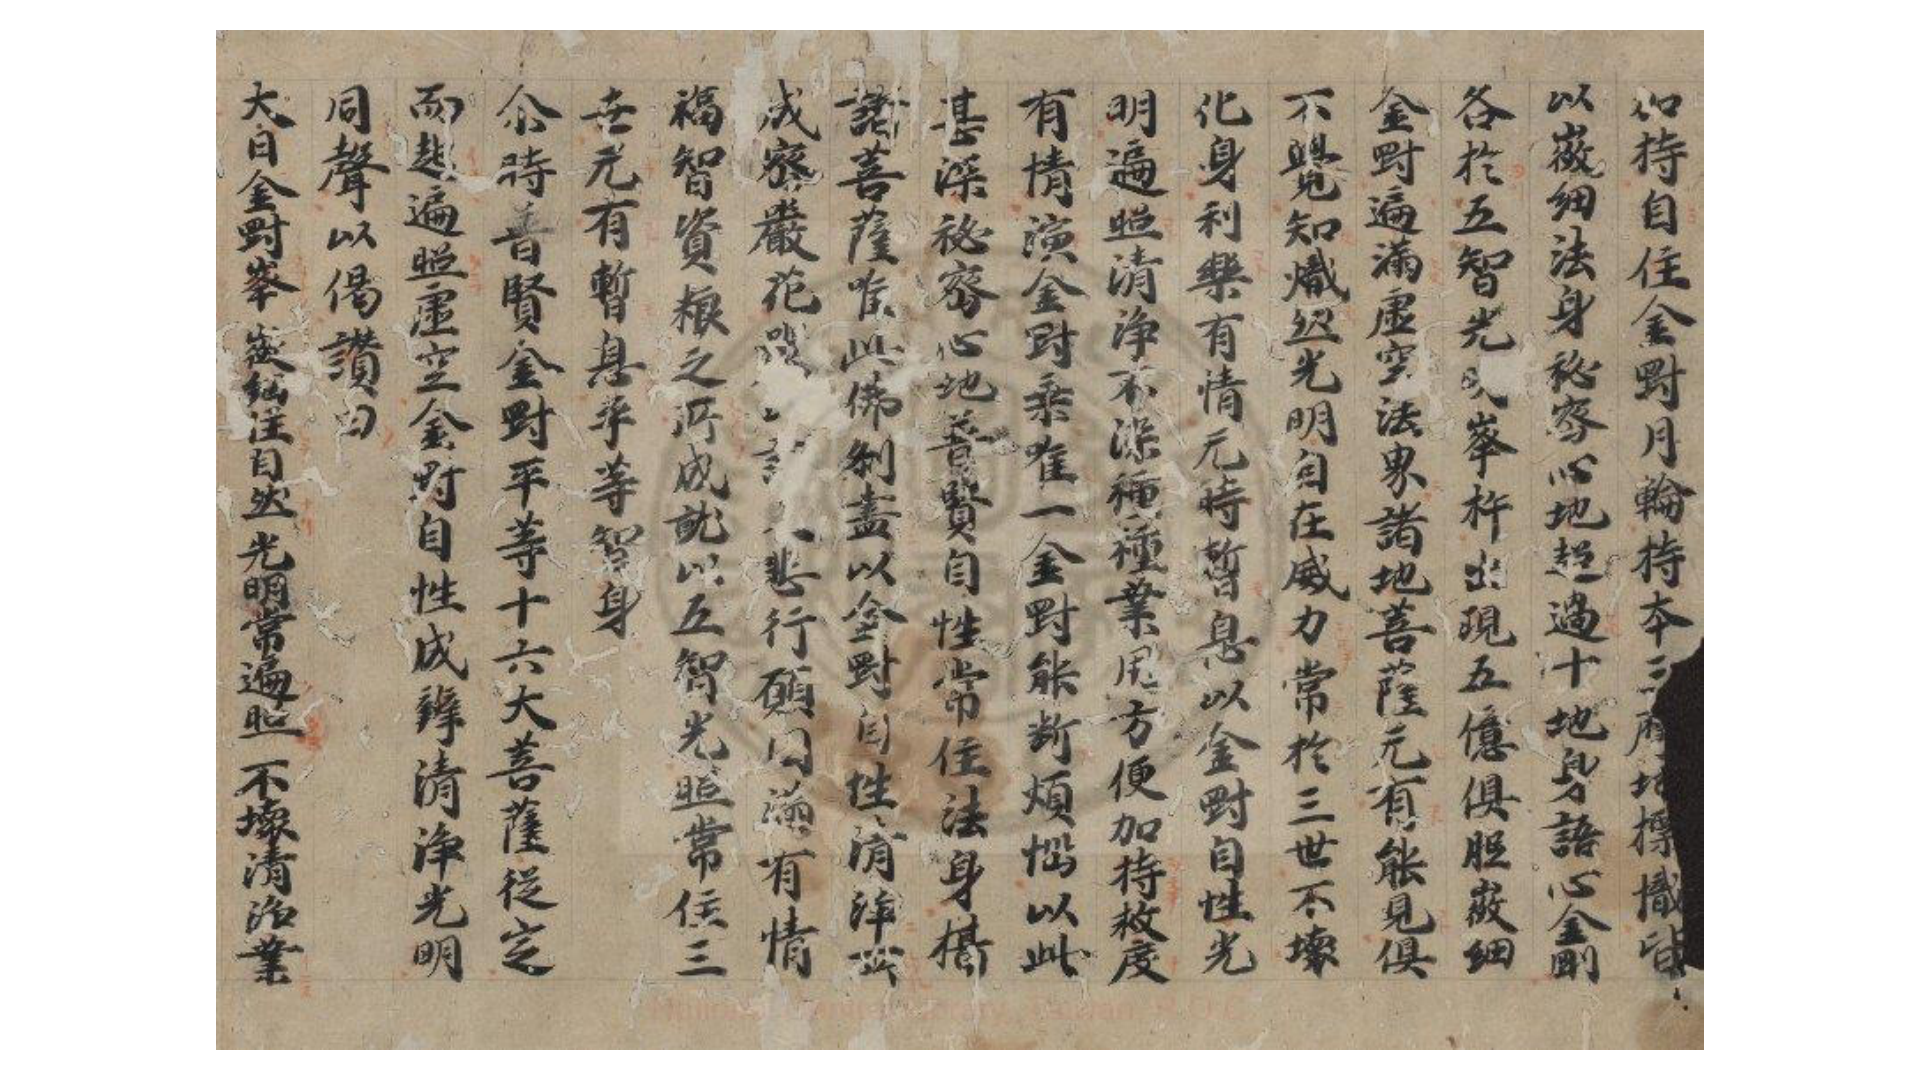 加持自住金剛月輪持本三摩地摽幟皆
以微細法身秘密心地超過十地身語心金剛
各於五智光明峯杵出現五億俱胝微細
金剛遍滿虛空法界諸地菩薩无有能見俱
不覺知熾然光明自在威力常於三世不壞
化身利樂有情无時暫息以金剛自性光
明遍照清淨不染種種業用方便加持救度
有情演金剛乘唯一金剛能斷煩惱以此
甚深秘密心地普賢自性常住法身攝
諸菩薩唯此佛刹盡以金剛自性清淨所
成密嚴花嚴以諸大悲行願圓滿有情
福智資粮之所成就以五智光照常住三
世无有暫息平等智身
尒時普賢金剛平等十六大菩薩從定
而起遍照虛空金剛自性成辦清淨光明
同聲以偈讚曰
大日金剛峯 微細住自然 光明常遍照 不壞清淨業
National Central Library, Taiwan, R.O.C.